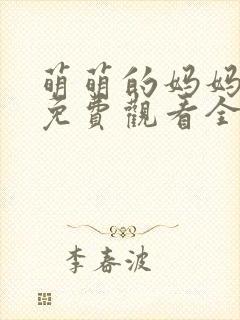 萌萌的妈妈
免費觀看全
李春波